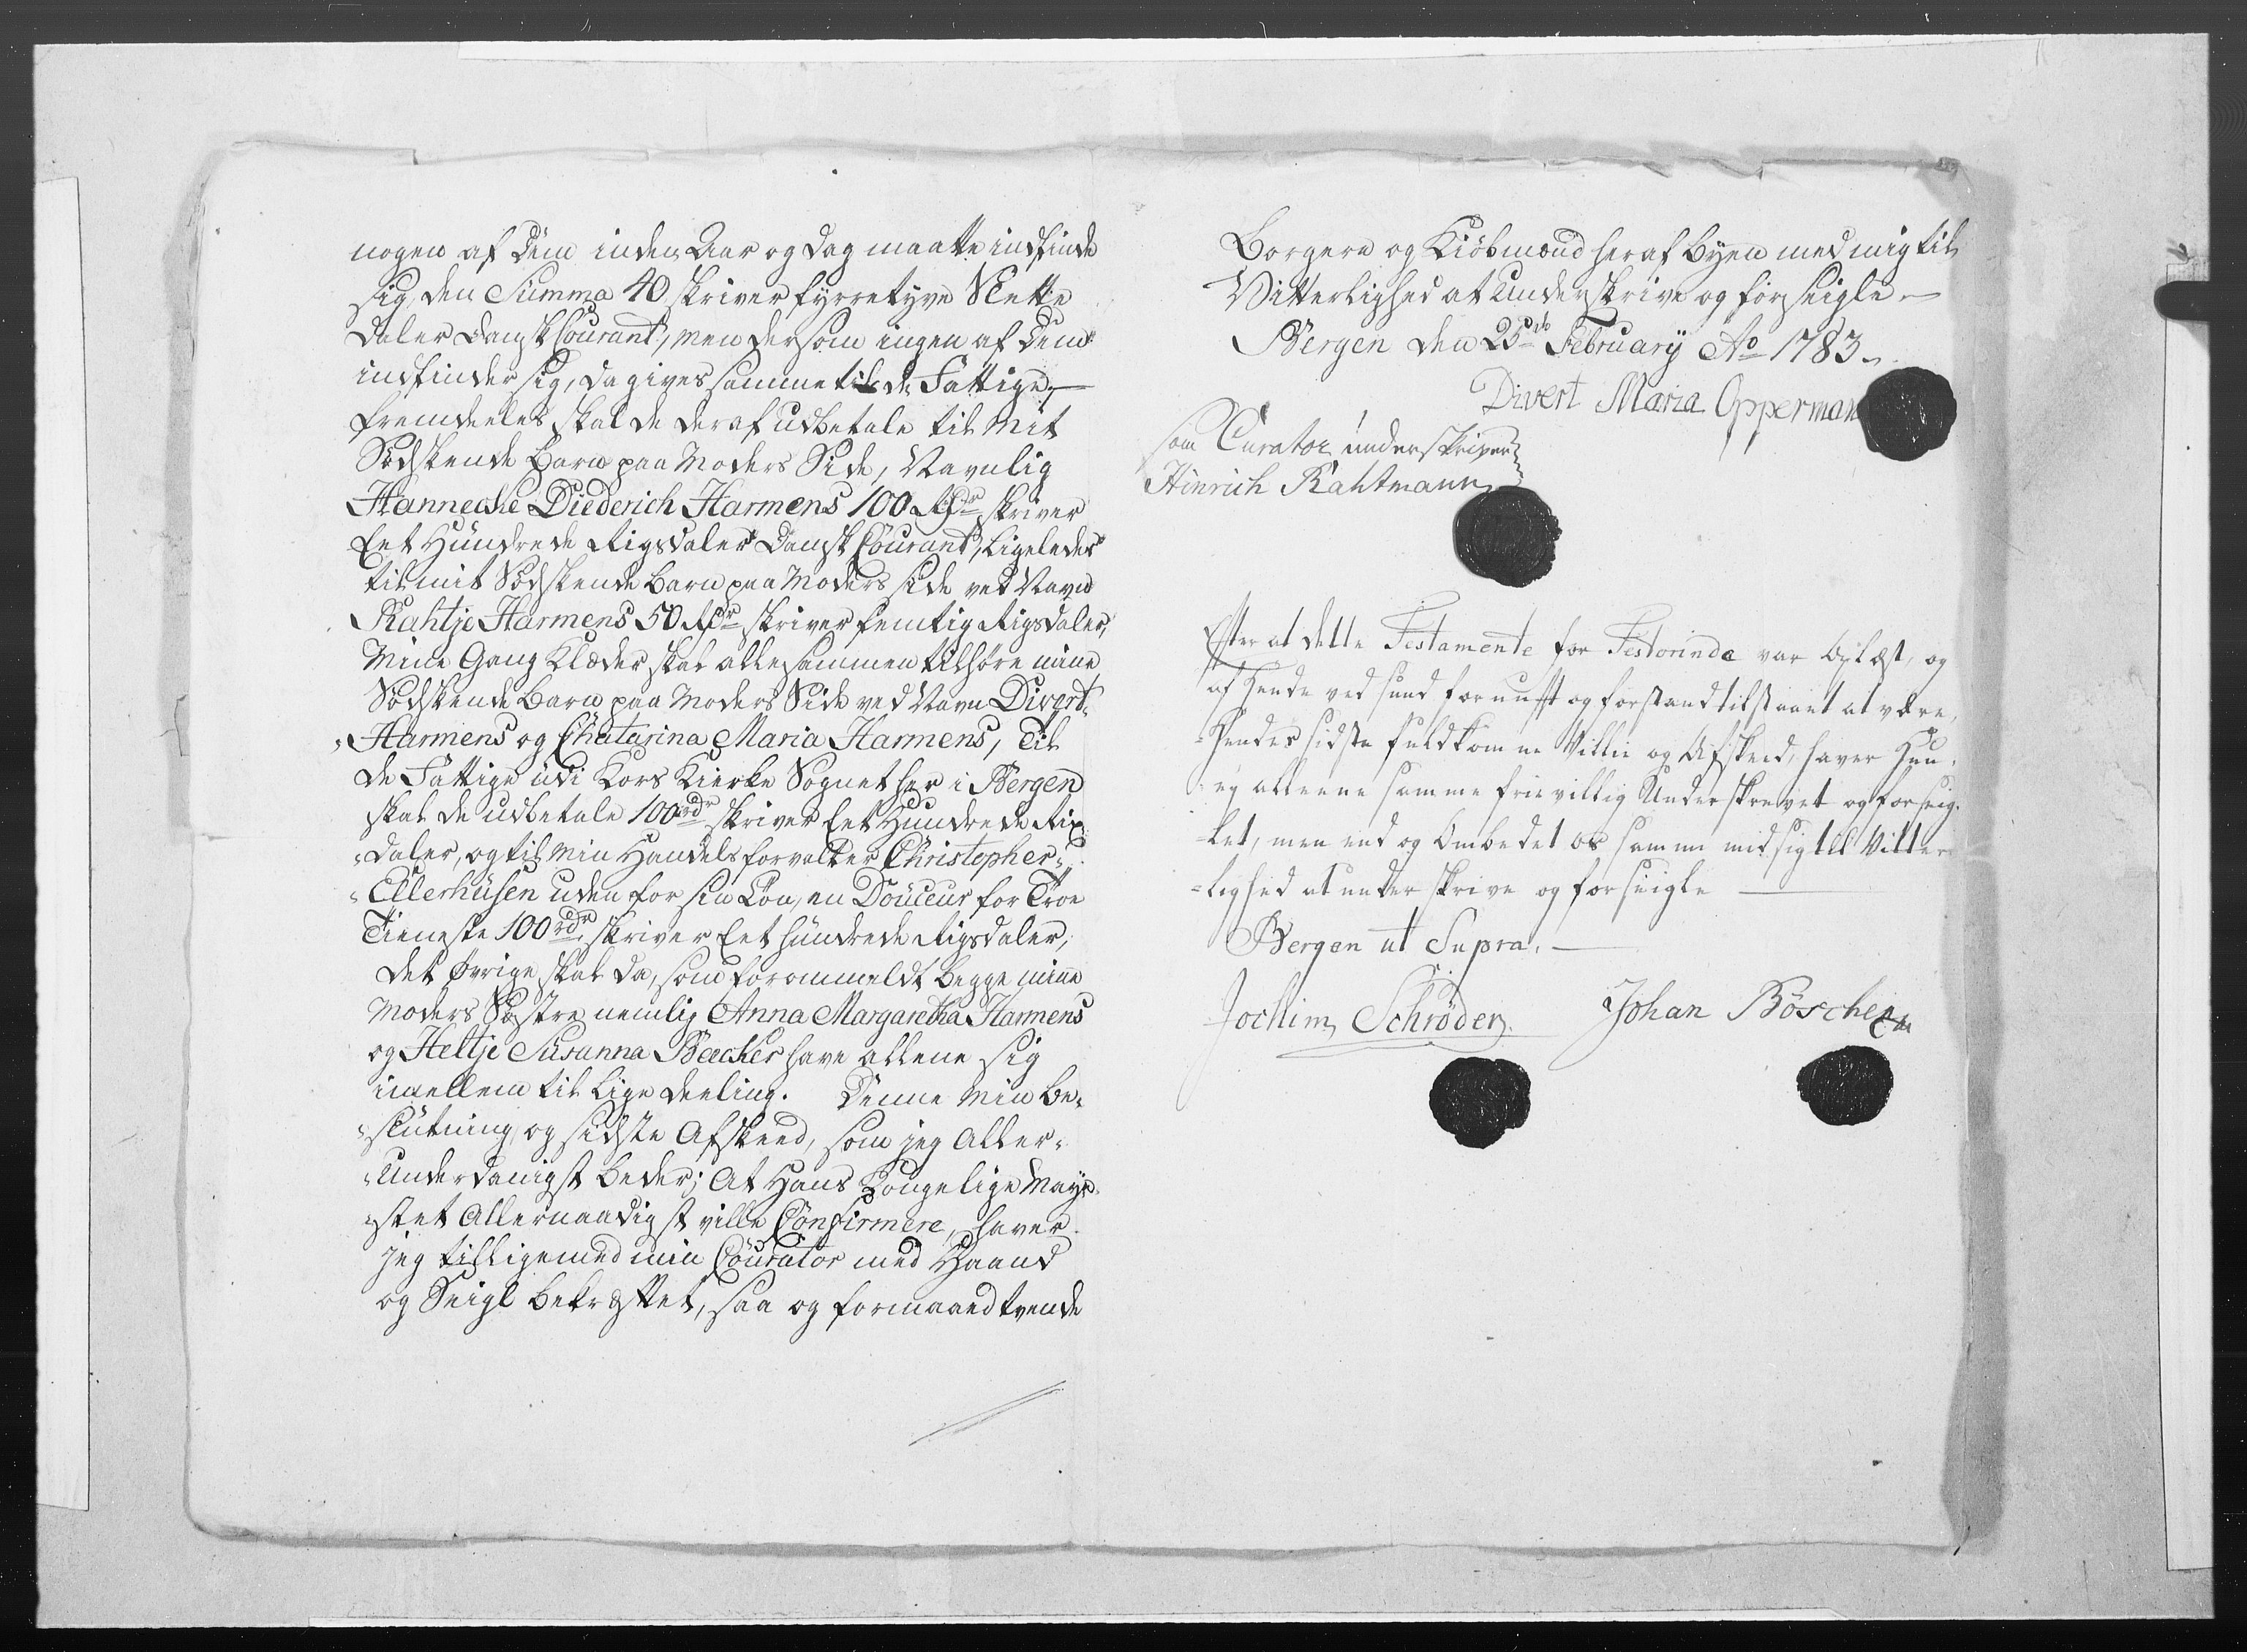 nogen af dem inden Aar og Dag maatte indfinde
sig, den Summa 40 skriver fyrretyve Slette
Daler Dansk Courant, men dersom ingen af dem
indfinder sig, da gives samme til de Fattige,
fremdeeles skal de deraf udbetale til Mit
Sødskende Barn paa Moders Side, Navnlig
Hannecke Diederich Harmens 100 Rdr skriver
Eet Hundrede Rigsdaler Dansk Courant, Ligeledes
til mit Sødskende Barn paa Moders side ved Navn
Kahtje Harmens 50 Rdr skriver femtig Rigsdaler,
Mine Gang Klæder skal allesammen tilhøre mine
Sødskende Barn paa Moders Side ved Navn Divert
Harmens og Chatarina Maria Harmens, Til
de Fattige udi Kors Kierke Sognet her i Bergen
skal de udbetale 100 rdr skriver Eet Hundrede Rix
-daler, og til Min Handels forvalter Christopher
-Ellerhusen uden for sin Løn, en Douceur for Troe
Tieneste 100 rdr skriver Eet hundrede Rigsdaler,
det Øvrige skal da, som forommeldt begge mine
Moders Søstre nemlig Anna Margaretha Harmens
og Heltje Susanna Beecker have allene sig
imellem til Lige deeling. Denne Min be-
-slutning og sidste Afskeed, som jeg Aller-
-underdanigst beder; At Hans Kongelige Maye-
-stet Allernaadigst ville Confirmere, haver
jeg tilligemed min Courator med Haand
og Seigl bekræftet, saa og formaaed tvende
Borgere og Kiøbmænd her af Byen med mig til
Vitterlighed at Underskrive og forseigle.
Bergen den 25de February Ao 1783.
Divert Maria Opperman
som Curator underskriver
Hinrich Rahtmann
Efter at dette Testamente for Testorinde var Oplæst, og
af Hende ved sund fornuft og forstand tilstaaet at være,
-Hendes sidste fuldkomne Villie og Afskeed, haver Hun
-ey alleene samme frievillig Underskrevet og forseig-
-let, men end og Ombedet os samme med sig til Vitter
-lighed at underskrive og forseigle
Bergen ut Supra.
Jochim Schröder.
Johan Böschen